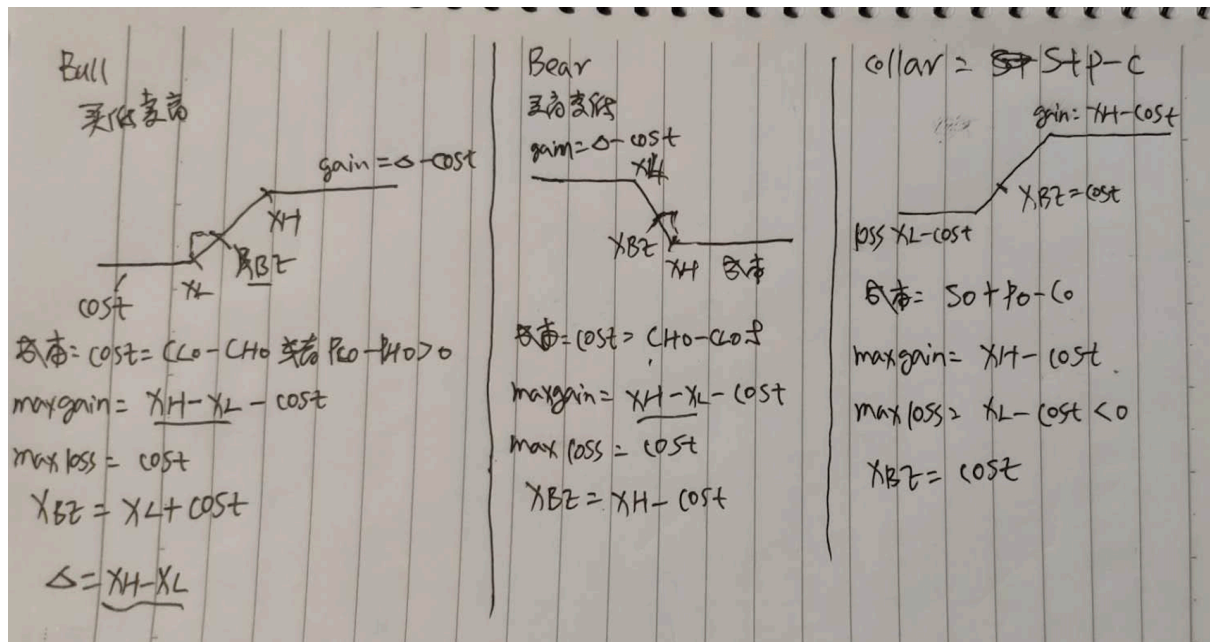 Bull
买低卖高
gain = Δ - cost
XH
XBE
XL
cost
成本 = cost = CL0 - CH0 或者 PL0 - PH0 > 0
maxgain = XH - XL - cost
max loss = cost
XBE = XL + cost
Δ = XH - XL
Bear
买高卖低
gain = Δ - cost
XL
XBE
XH 成本
成本 = cost =
maxgain = XH - XL - cost
max loss = cost
XBE = XH - cost
collar = S + P - C
gain: XH - cost
XBE = cost
loss XL - cost
成本 = S0 + P0 - C0
maxgain = XH - cost
max loss = XL - cost < 0
XBE = cost